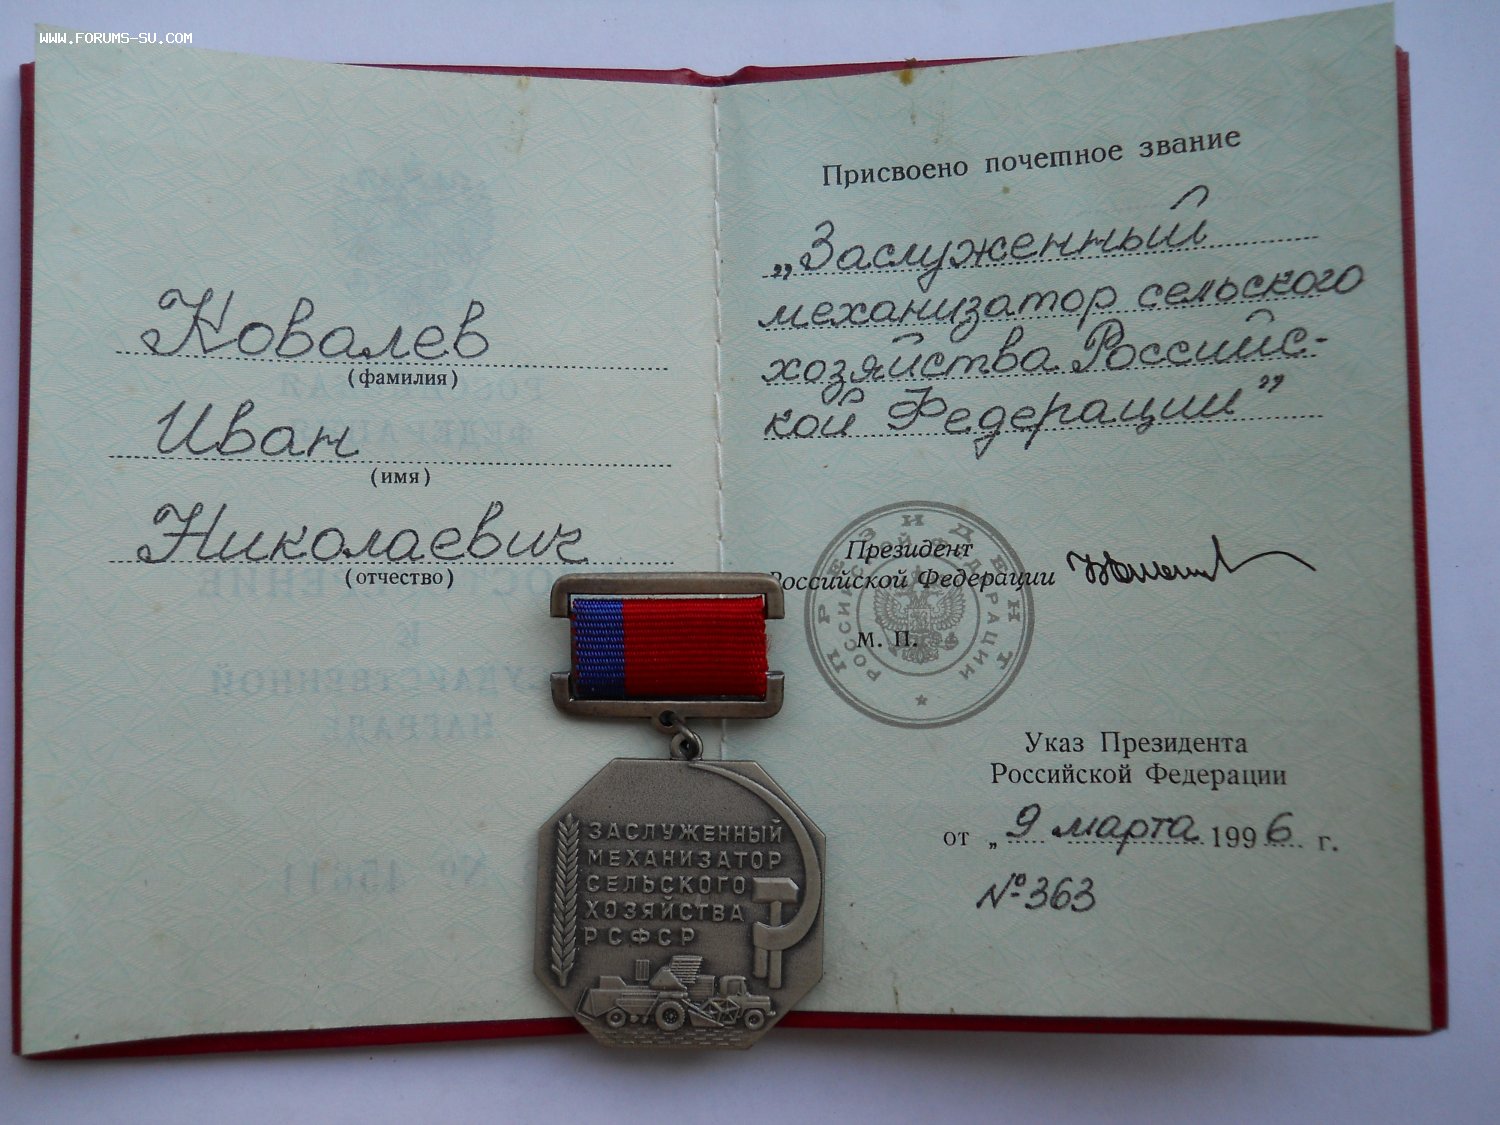 WWW.FORUMS-SU.COM
Ковалев
(фамилия)
Иван
(имя)
Николаевич
(отчество)
Присвоено почетное звание
„Заслуженный
механизатор сельского
хозяйства Российс-
кой Федерации”
Президент
Российской Федерации
м. п.
ПРЕЗИДЕНТ
РОССИЙСКОЙ ФЕДЕРАЦИИ
Указ Президента
Российской Федерации
от „9 марта 1996 г.
№ 363
ЗАСЛУЖЕННЫЙ
МЕХАНИЗАТОР
СЕЛЬСКОГО
ХОЗЯЙСТВА
РСФСР